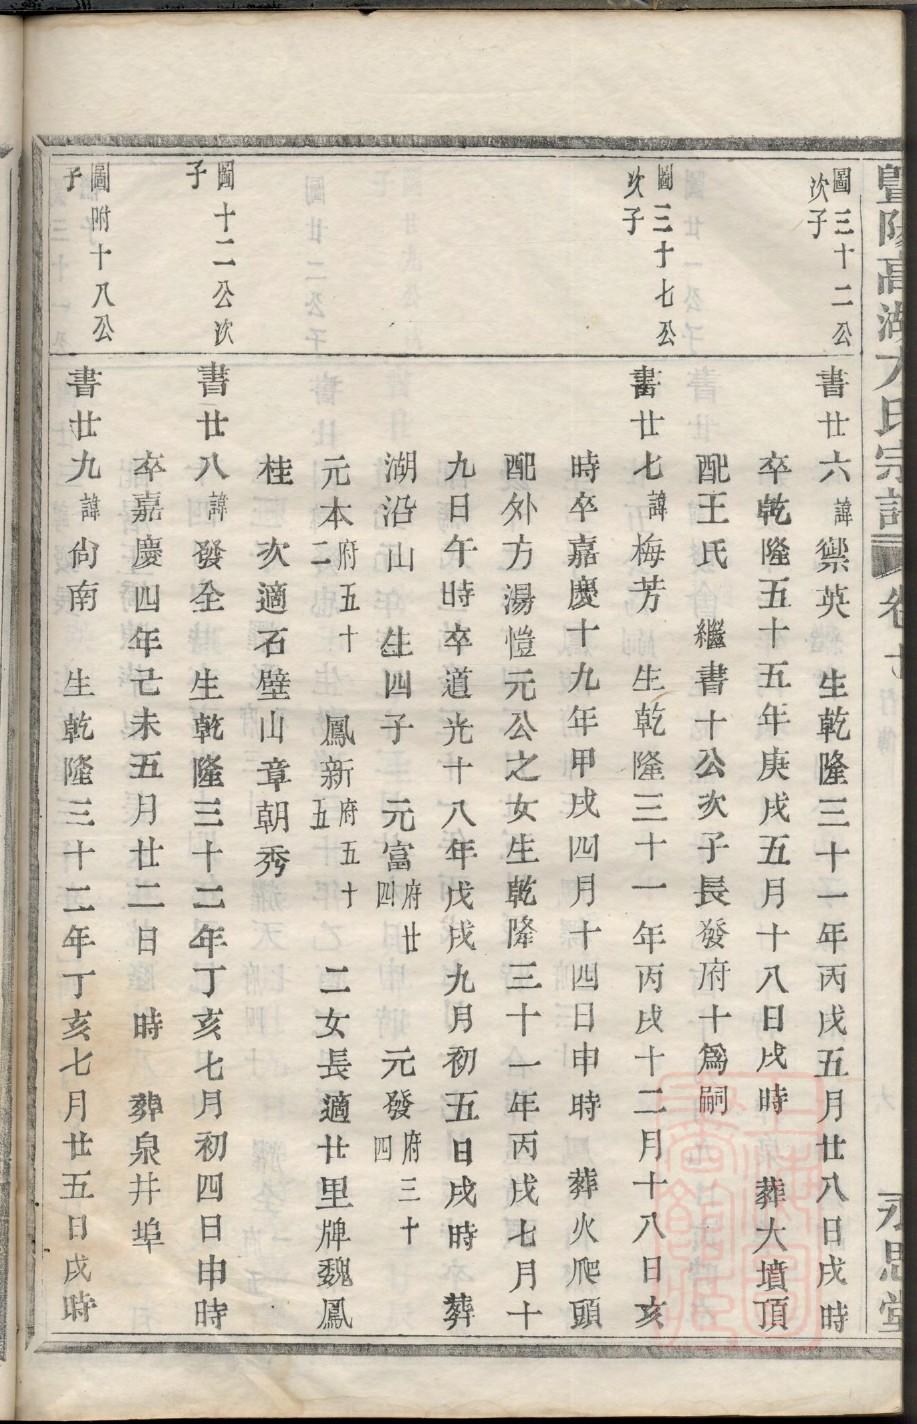 暨陽高湖方氏宗譜 卷 永思堂
圖三十二公
次子
書廿六諱禦英 生乾隆三十一年丙戌五月廿八日戌時
卒乾隆五十五年庚戌五月十八日戌時 葬大墳頂
配王氏 繼書十公次子長發府十爲嗣
圖三十七公
次子
書廿七諱梅芳 生乾隆三十一年丙戌十二月十八日亥
時卒嘉慶十九年甲戌四月十四日申時 葬火爬頭
配外方湯愷元公之女生乾隆三十一年丙戌七月十
九日午時卒道光十八年戊戌九月初五日戌時 葬
湖沿山 生四子 元富府廿四 元發府三十四
元本府五十二 鳳新府五十五 二女長適廿里牌魏鳳
桂次適石壁山章朝秀
圖十二公次
子
書廿八諱發全 生乾隆三十二年丁亥七月初四日申時
卒嘉慶四年己未五月廿二日 時 葬泉井埠
圖附十八公
子
書廿九諱尙南 生乾隆三十二年丁亥七月廿五日戌時